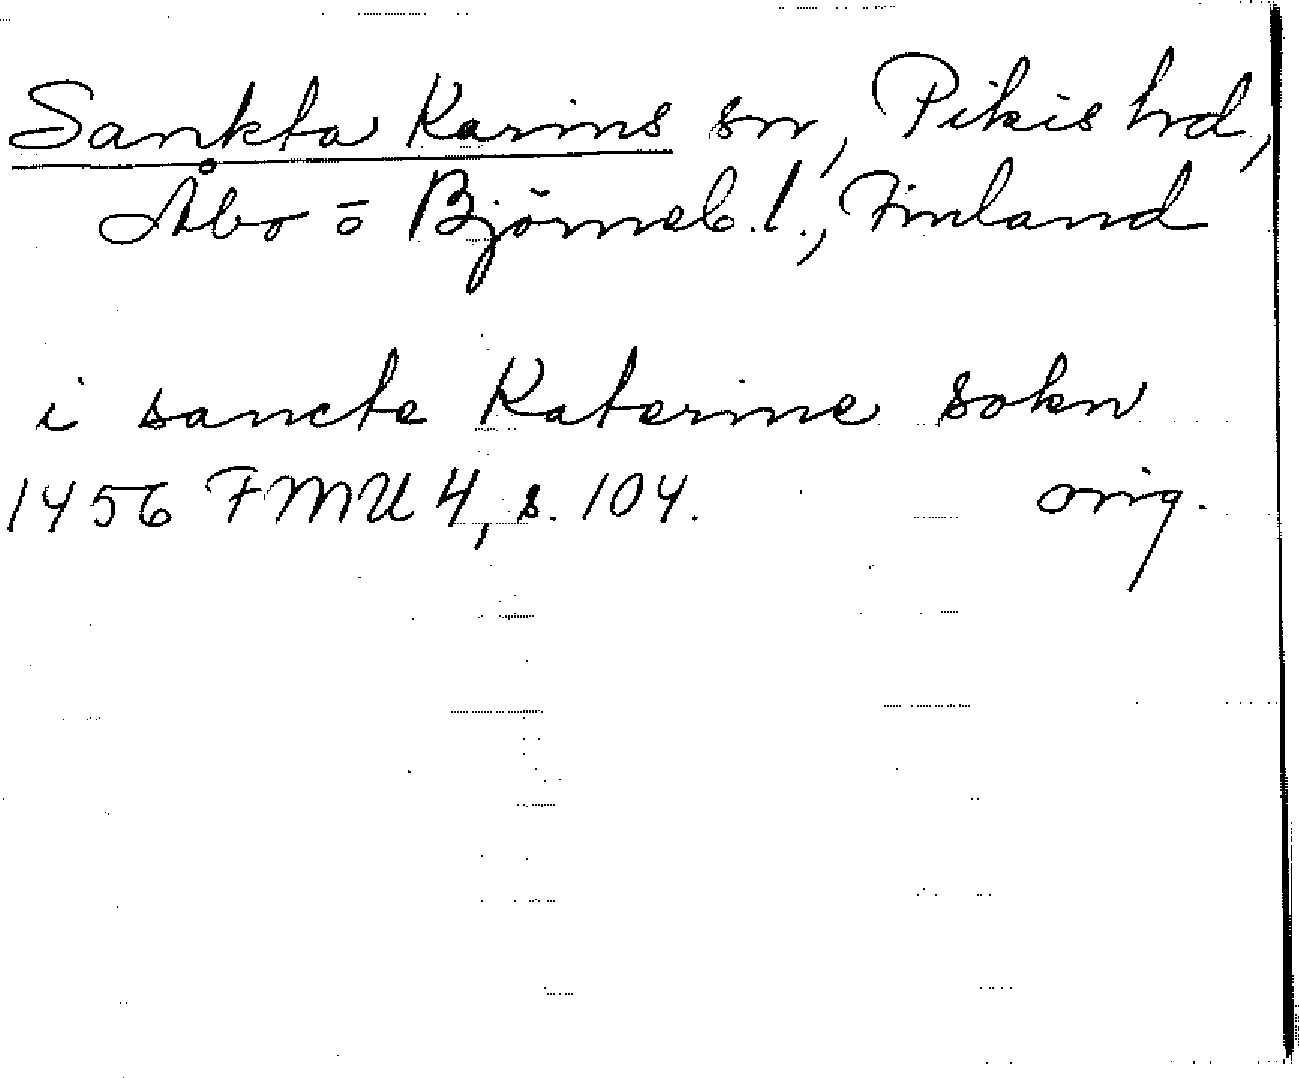 Sankta Karins sn, Pikis hrd,
Åbo o Björneb. l., Finland
i sancte Katerine sokn
1456 FMU 4, s. 104. orig.